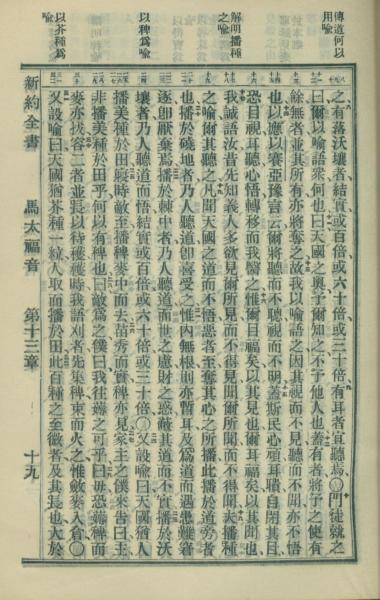 傳道何以
用喻
解明播種
之喻
以稗爲喻
以芥種爲
喻
之有落沃壤者結實或百倍或六十倍或三十倍有耳者宜聽焉○門徒就之
曰爾以喻語衆何也曰天國之奧予爾知之不予他人也蓋有者將予之使有
餘無者並其所有亦將奪之故我以喻語之因其視而不見聽而不聞亦不悟
也以應以賽亞豫言云爾將聽而不聰視而不明蓋斯民心頑耳聵自閉其目
恐目視耳聽心悟轉移而我醫之惟爾目福矣以其見也爾耳福矣以其聞也
我誠語汝昔先知義人多欲見爾所見而不得見聞爾所聞而不得聞夫播種
之喻爾其聽之凡聞天國之道而不悟惡者至奪其心之所播此播於道旁者
也播於磽地者乃人聽道卽喜受之惟內無根則亦暫耳及爲道而遇患難窘
逐卽厭棄焉播於棘中者乃人聽道而世之慮財之惑蔽其道而不實播於沃
壤者乃人聽道而悟結實或百倍或六十倍或三十○又設喻曰天國猶人
播美種於田寢時敵至播稗麥中而去苗秀而實稗亦見家主之僕來告曰主
非播美種於田乎何以有稗也曰敵爲之僕曰我往薅之可乎曰毋恐薅稗而
麥亦拔容二者並長以待穫穫時我語刈者先集稗束而火之惟斂麥入倉○
又設喻曰天國猶芥種一粒人取而播於田此百種之至微者及其長也大於
新約全書 馬太福音 第十三章 十九